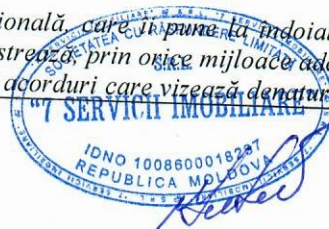 ională, care îi pune la îndoial
strează, prin orice mijloace ade
acorduri care vizează denatur
SOCIETATEA CU RĂSPUNDERE LIMITATĂ
S.R.L.
"7 SERVICII IMOBILIARE"
IDNO 1008600018297
REPUBLICA MOLDOVA